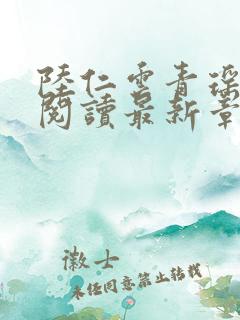 陸仁雲青瑤
閱讀最新章
徽士
未經同意禁止轉載